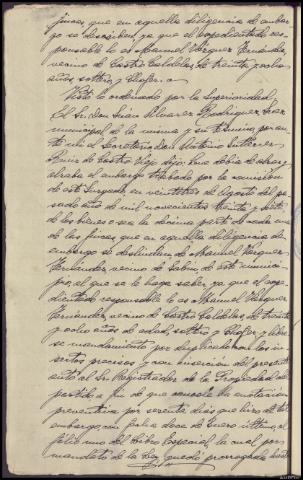 fincas que en aquella diligencia de embar-
go se describen, ya que el expedientado res-
ponsable lo es Manuel Vázquez Fernández
vecino de Castro Caldelas de treinta y ocho
años soltero y Chofer.=
Visto lo ordenado por la Superioridad
El Sr. Don Juan Alvarez Rodríguez Juez
municipal de la misma y su término por an-
te mí el Secretario Don Antonio Gutierrez
dijo: Que debía de
alzaba el embargo trabado por la comision
de este Juzgado en veintitres de Agosto del pa-
sado año de mil novecientos treinta y siete
de los bienes o sea la decima parte de cada una
de las fincas que en aquella diligencia de
embargo se deslindan de Manuel Vazquez
Fernandez, vecino de de este munici-
pio, al que se le haga saber, ya que el expe-
dientado responsable lo es Manuel Vázquez
Fernandez, vecino de Castro Caldelas de treinta
y ocho años de edad, soltero y Chofer y libre-
se mandamiento por duplicado con los in-
sertos precisos y con inserción del presente
auto al Sr. Registrador de la Propiedad del
partido a fin de que cancele la anotación
preventiva por sesenta dias que hizo de tal
embargo con fecha doce de Enero ultimo, al
folio uno del Libro Especial, la cual por
mandato de la Ley quedó prorrogada hasta